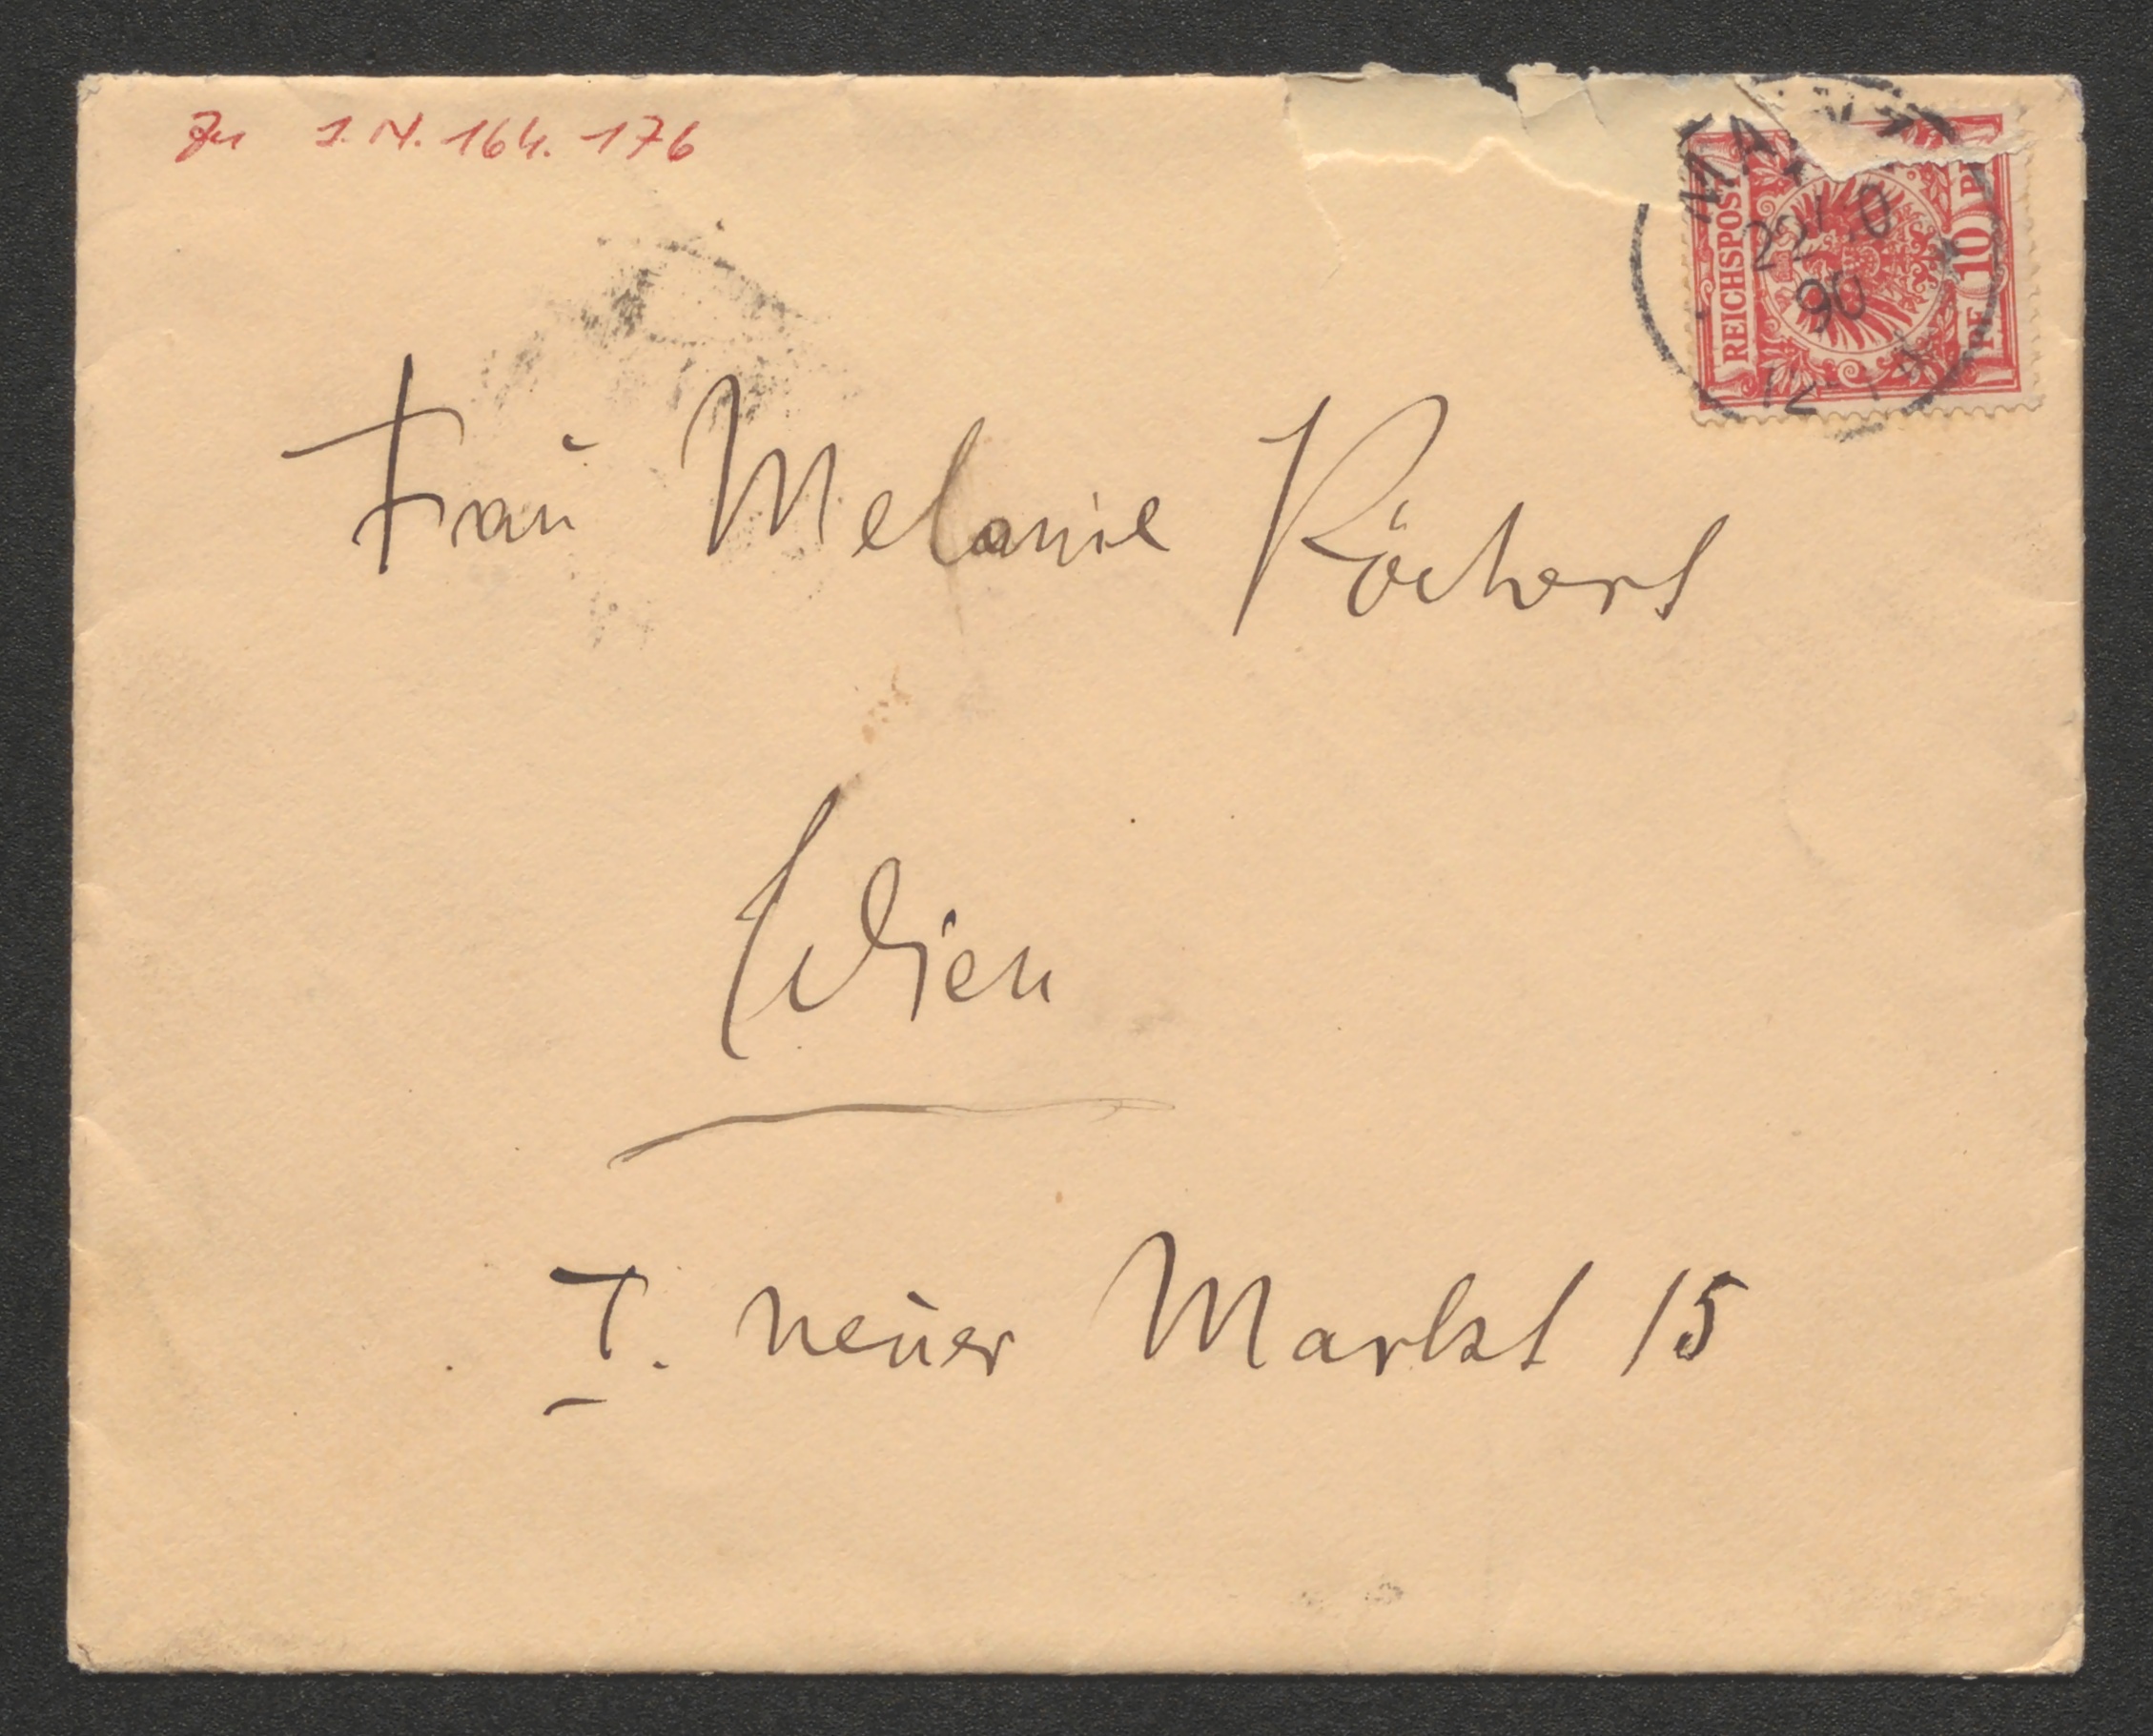 Zu I.N. 164.176
REICHSPOST
PF 10 PF
22 10
90
Frau Melanie Köchert
Wien
I. neuer Markt 15